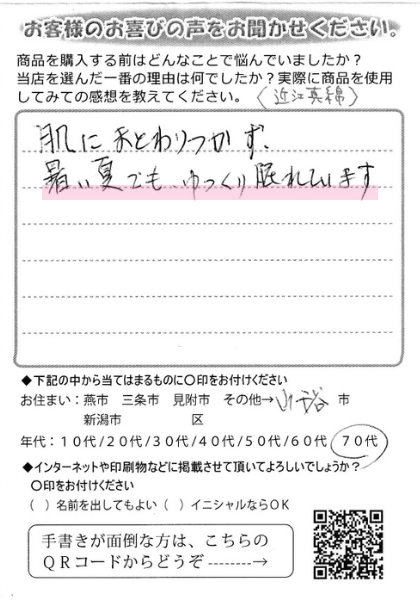 お客様のお喜びの声をお聞かせください。
商品を購入する前はどんなことで悩んでいましたか?
当店を選んだ一番の理由は何でしたか?実際に商品を使用
してみての感想を教えてください。(近江真綿)
肌にまとわりつかず、
暑い夏でも、ゆっくり眠れています
◆下記の中から当てはまるものに〇印をお付けください
お住まい:燕市 三条市 見附市 その他→ 市
新潟市 区
年代:10代/20代/30代/40代/50代/60代 70代
◆インターネットや印刷物などに掲載させて頂いてよろしいでしょうか?
〇印をお付けください
( )名前を出してもよい( )イニシャルならOK
手書きが面倒な方は、こちらの
QRコードからどうぞ--------→